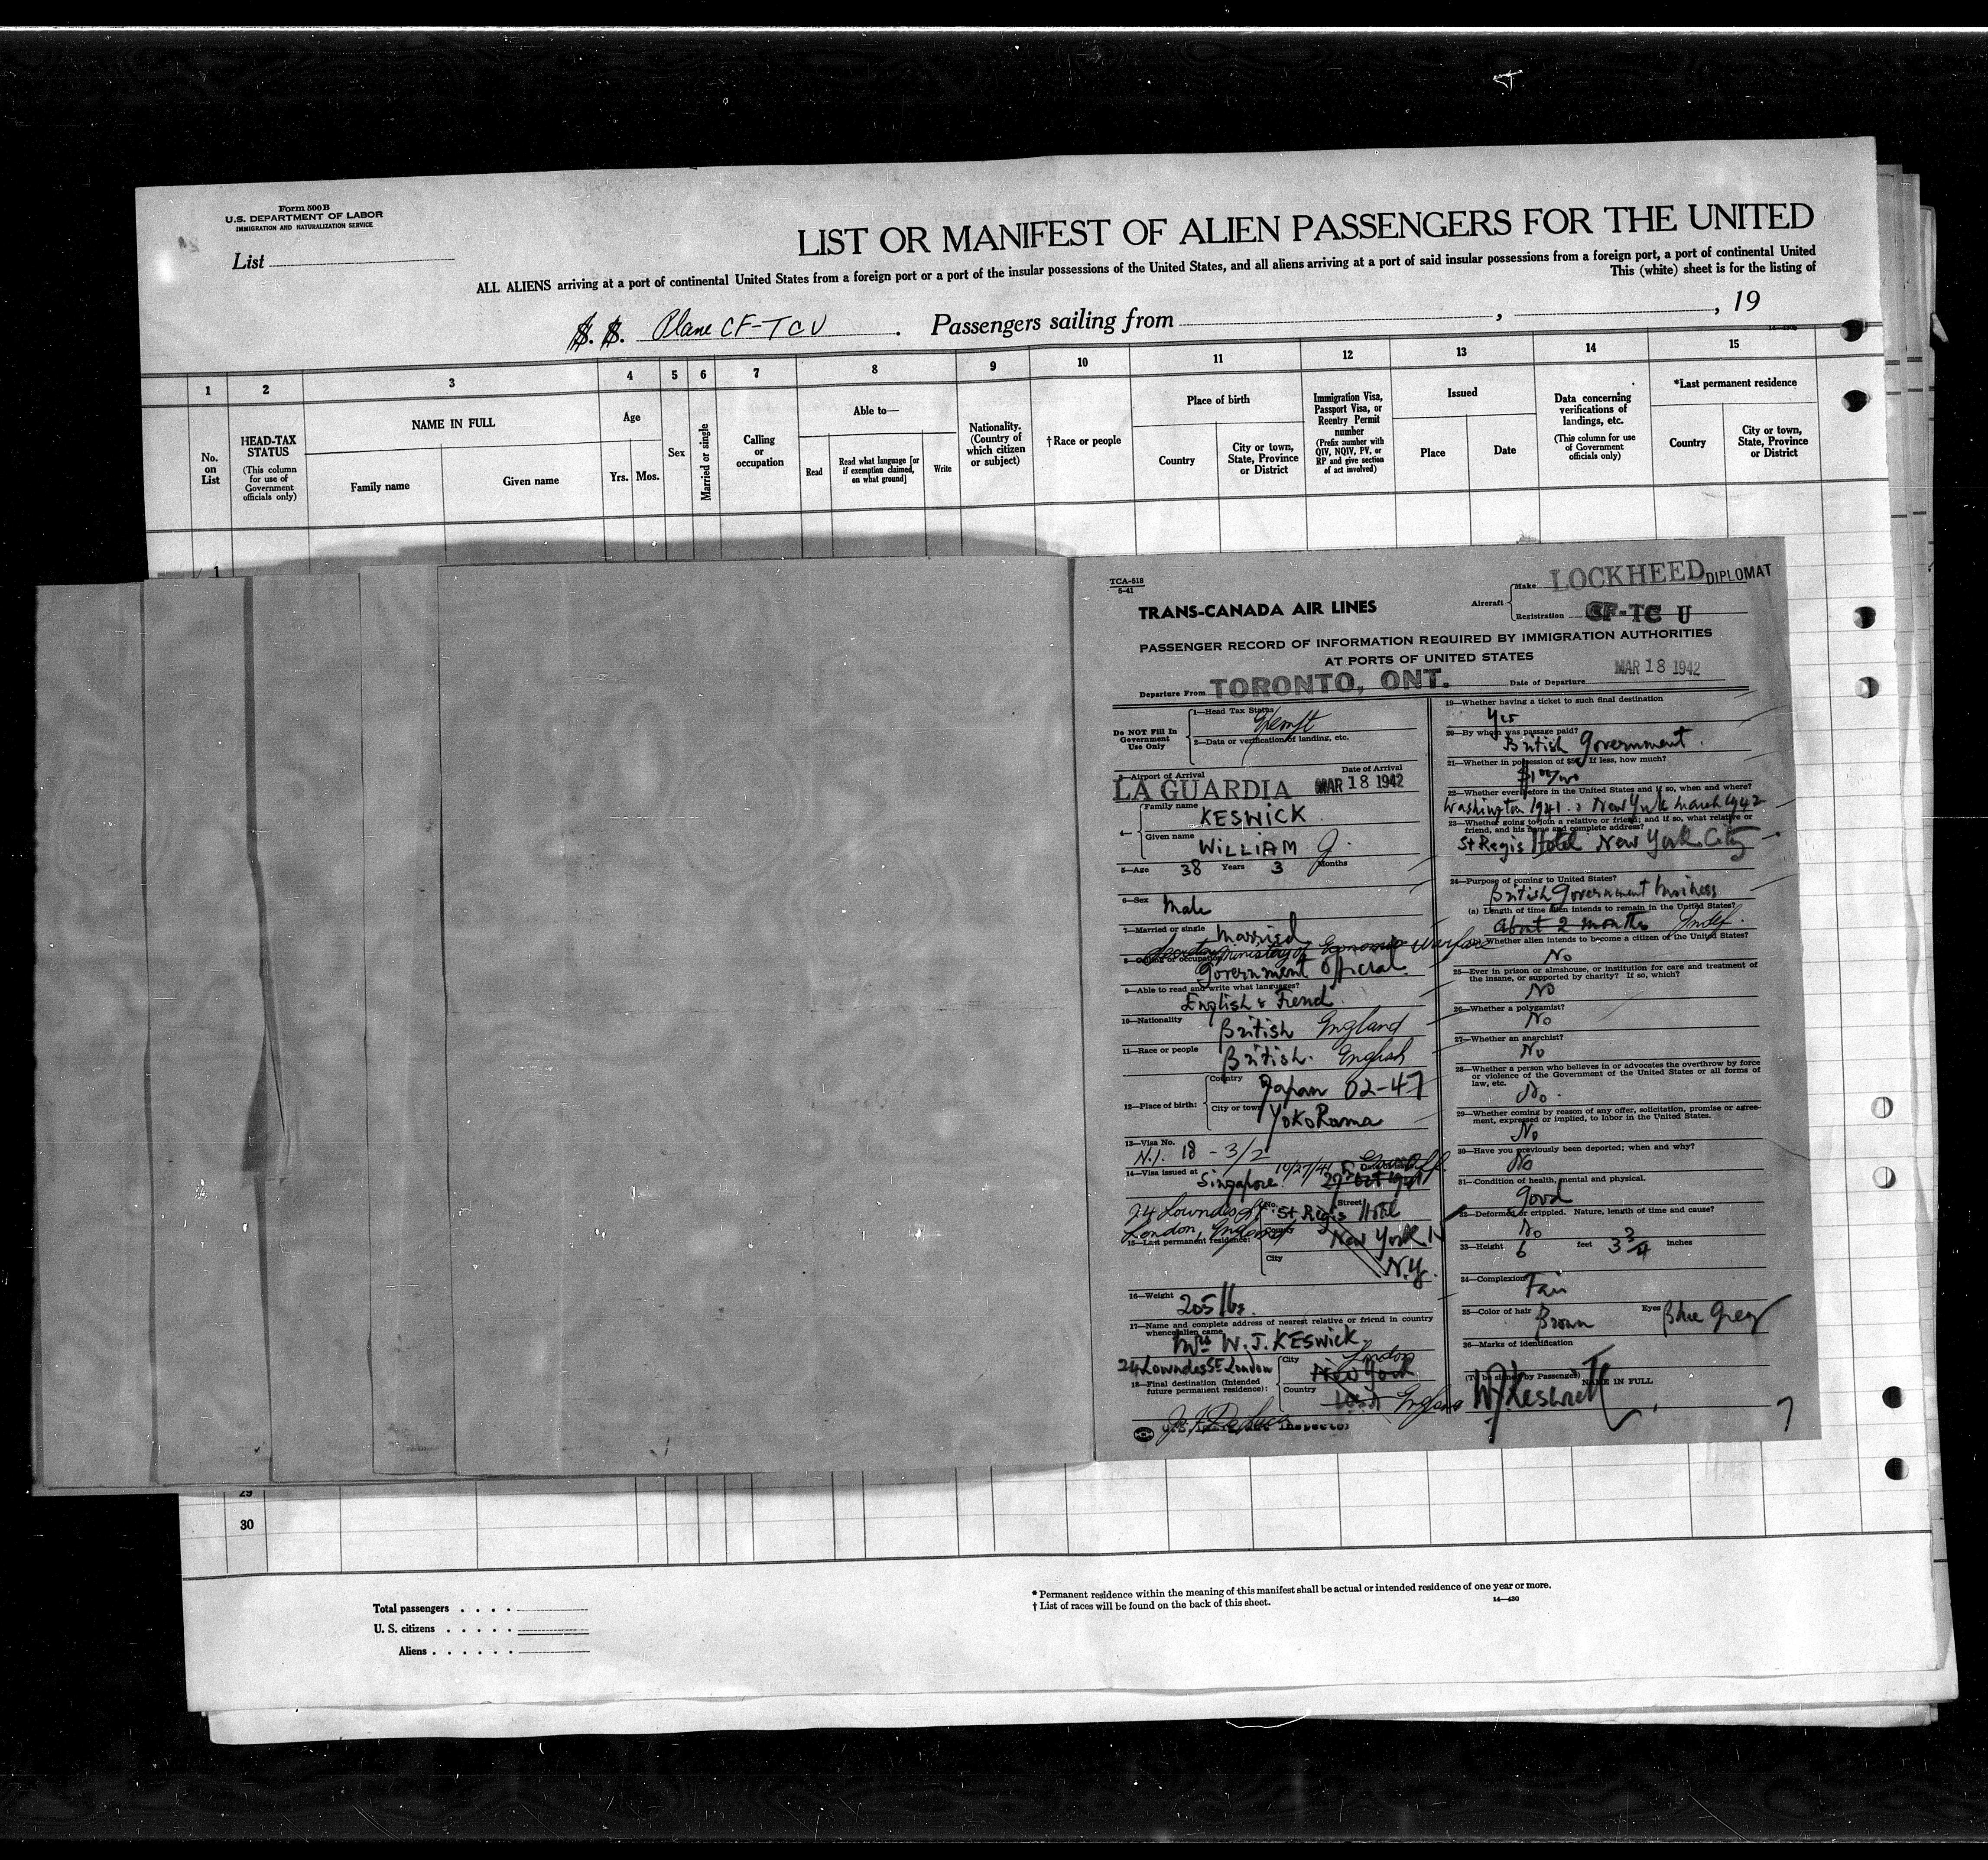 Form 500 B
U.S. DEPARTMENT OF LABOR
IMMIGRATION AND NATURALIZATION SERVICE
List
LIST OR MANIFEST OF ALIEN PASSENGERS FOR THE UNITED
ALL ALIENS arriving at a port of continental United States from a foreign port or a port of the insular possessions of the United States, and all aliens arriving at a port of said insular possessions from a foreign port, a port of continental United
This (white) sheet is for the listing of
S. S. Plane CF-TCU . Passengers sailing from , , 19
1 2 3 4 5 6 7 8 9 10 11 12 13 14 15
No. on List
HEAD-TAX STATUS
(This column for use of Government officials only)
NAME IN FULL
Family name
Given name
Age
Yrs. Mos.
Sex
Married or single
Calling or occupation
Able to—
Read
Read what language [or if exemption claimed, on what ground]
Write
Nationality. (Country of which citizen or subject)
†Race or people
Place of birth
Country
City or town, State, Province or District
Immigration Visa, Passport Visa, or Reentry Permit number
(Prefix number with QIV, NQIV, PV, or RP and give section of act involved)
Issued
Place
Date
Data concerning verifications of landings, etc.
(This column for use of Government officials only)
*Last permanent residence
Country
City or town, State, Province or District
1
TCA-518
5-41
TRANS-CANADA AIR LINES
Aircraft
Make LOCKHEED DIPLOMAT
Registration CF-TC U
PASSENGER RECORD OF INFORMATION REQUIRED BY IMMIGRATION AUTHORITIES
AT PORTS OF UNITED STATES
Departure From TORONTO, ONT. Date of Departure MAR 18 1942
Do NOT Fill In
Government
Use Only
1—Head Tax Status
2—Data or verification of landing, etc.
3—Airport of Arrival LA GUARDIA
Date of Arrival MAR 18 1942
4—
Family name KESWICK
Given name WILLIAM J.
5—Age 38 Years 3 Months
6—Sex Male
7—Married or single Married
Ministry of Economic Warfare
8—Calling or occupation
Government Official
9—Able to read and write what languages?
English & Frend
10—Nationality British England
11—Race or people British. English
12—Place of birth:
Country Japan 02-47
City or town Yokohama
13—Visa No.
N.I. 18 - 3/2
14—Visa issued at Singapore 10/27/41
24 Lowndes St
London, England
15—Last permanent residence:
No. St Regis Street Hotel
County New York
City N.Y.
16—Weight 205 lbs.
17—Name and complete address of nearest relative or friend in country
whence alien came
Mrs W. J. KESWICK
24 Lowndes St London
18—Final destination (Intended
future permanent residence):
City New York London
Country U.S.A England
U.S. Inspector
19—Whether having a ticket to such final destination
Yes
20—By whom was passage paid?
British Government.
21—Whether in possession of $50. If less, how much?
22—Whether ever before in the United States and if so, when and where?
Washington 1941. & New York March 1942
23—Whether going to join a relative or friend; and if so, what relative or
friend, and his name and complete address?
St Regis Hotel New York City
24—Purpose of coming to United States?
British Government business
(a) Length of time alien intends to remain in the United States?
about 2 months Indef.
Whether alien intends to become a citizen of the United States?
No
25—Ever in prison or almshouse, or institution for care and treatment of
the insane, or supported by charity? If so, which?
No
26—Whether a polygamist?
No
27—Whether an anarchist?
No
28—Whether a person who believes in or advocates the overthrow by force
or violence of the Government of the United States or all forms of
law, etc.
No.
29—Whether coming by reason of any offer, solicitation, promise or agree-
ment, expressed or implied, to labor in the United States.
No
30—Have you previously been deported; when and why?
No
31—Condition of health, mental and physical.
Good
32—Deformed or crippled. Nature, length of time and cause?
No
33—Height 6 feet 3 3/4 inches
34—Complexion Fair
35—Color of hair Brown Eyes Blue Grey
36—Marks of identification
(To be signed by Passenger) NAME IN FULL
WJKeswick
7
29
30
Total passengers . . . .
U. S. citizens . . . . .
Aliens . . . . . .
* Permanent residence within the meaning of this manifest shall be actual or intended residence of one year or more.
† List of races will be found on the back of this sheet.
14—430